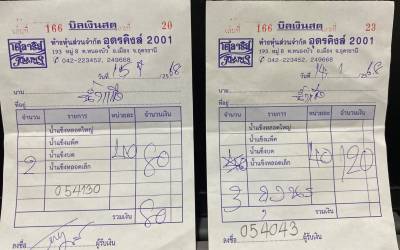 บิลเงินสด
เล่มที่ 166 เลขที่ 20
ห้างหุ้นส่วนจำกัด อุดรคิงส์ 2001
193 หมู่ 8 ต.หนองบัว อ.เมือง จ.อุดรธานี
042-223452, 249668
วันที่ 15
นาม
ที่อยู่
จำนวน รายการ หน่วยละ จำนวนเงิน
น้ำแข็งหลอดใหญ่
น้ำแข็งแพ็ค
น้ำแข็งบด
2 น้ำแข็งหลอดเล็ก 40 80
054130
รวมเงิน 80
ลงชื่อ ผู้รับเงิน
บิลเงินสด
เล่มที่ 166 เลขที่ 23
ห้างหุ้นส่วนจำกัด อุดรคิงส์ 2001
193 หมู่ 8 ต.หนองบัว อ.เมือง จ.อุดรธานี
042-223452, 249668
วันที่ 14
นาม
ที่อยู่
จำนวน รายการ หน่วยละ จำนวนเงิน
น้ำแข็งหลอดใหญ่
น้ำแข็งแพ็ค
น้ำแข็งบด
น้ำแข็งหลอดเล็ก 40 120
3
รวมเงิน
054043
ลงชื่อ ผู้รับเงิน